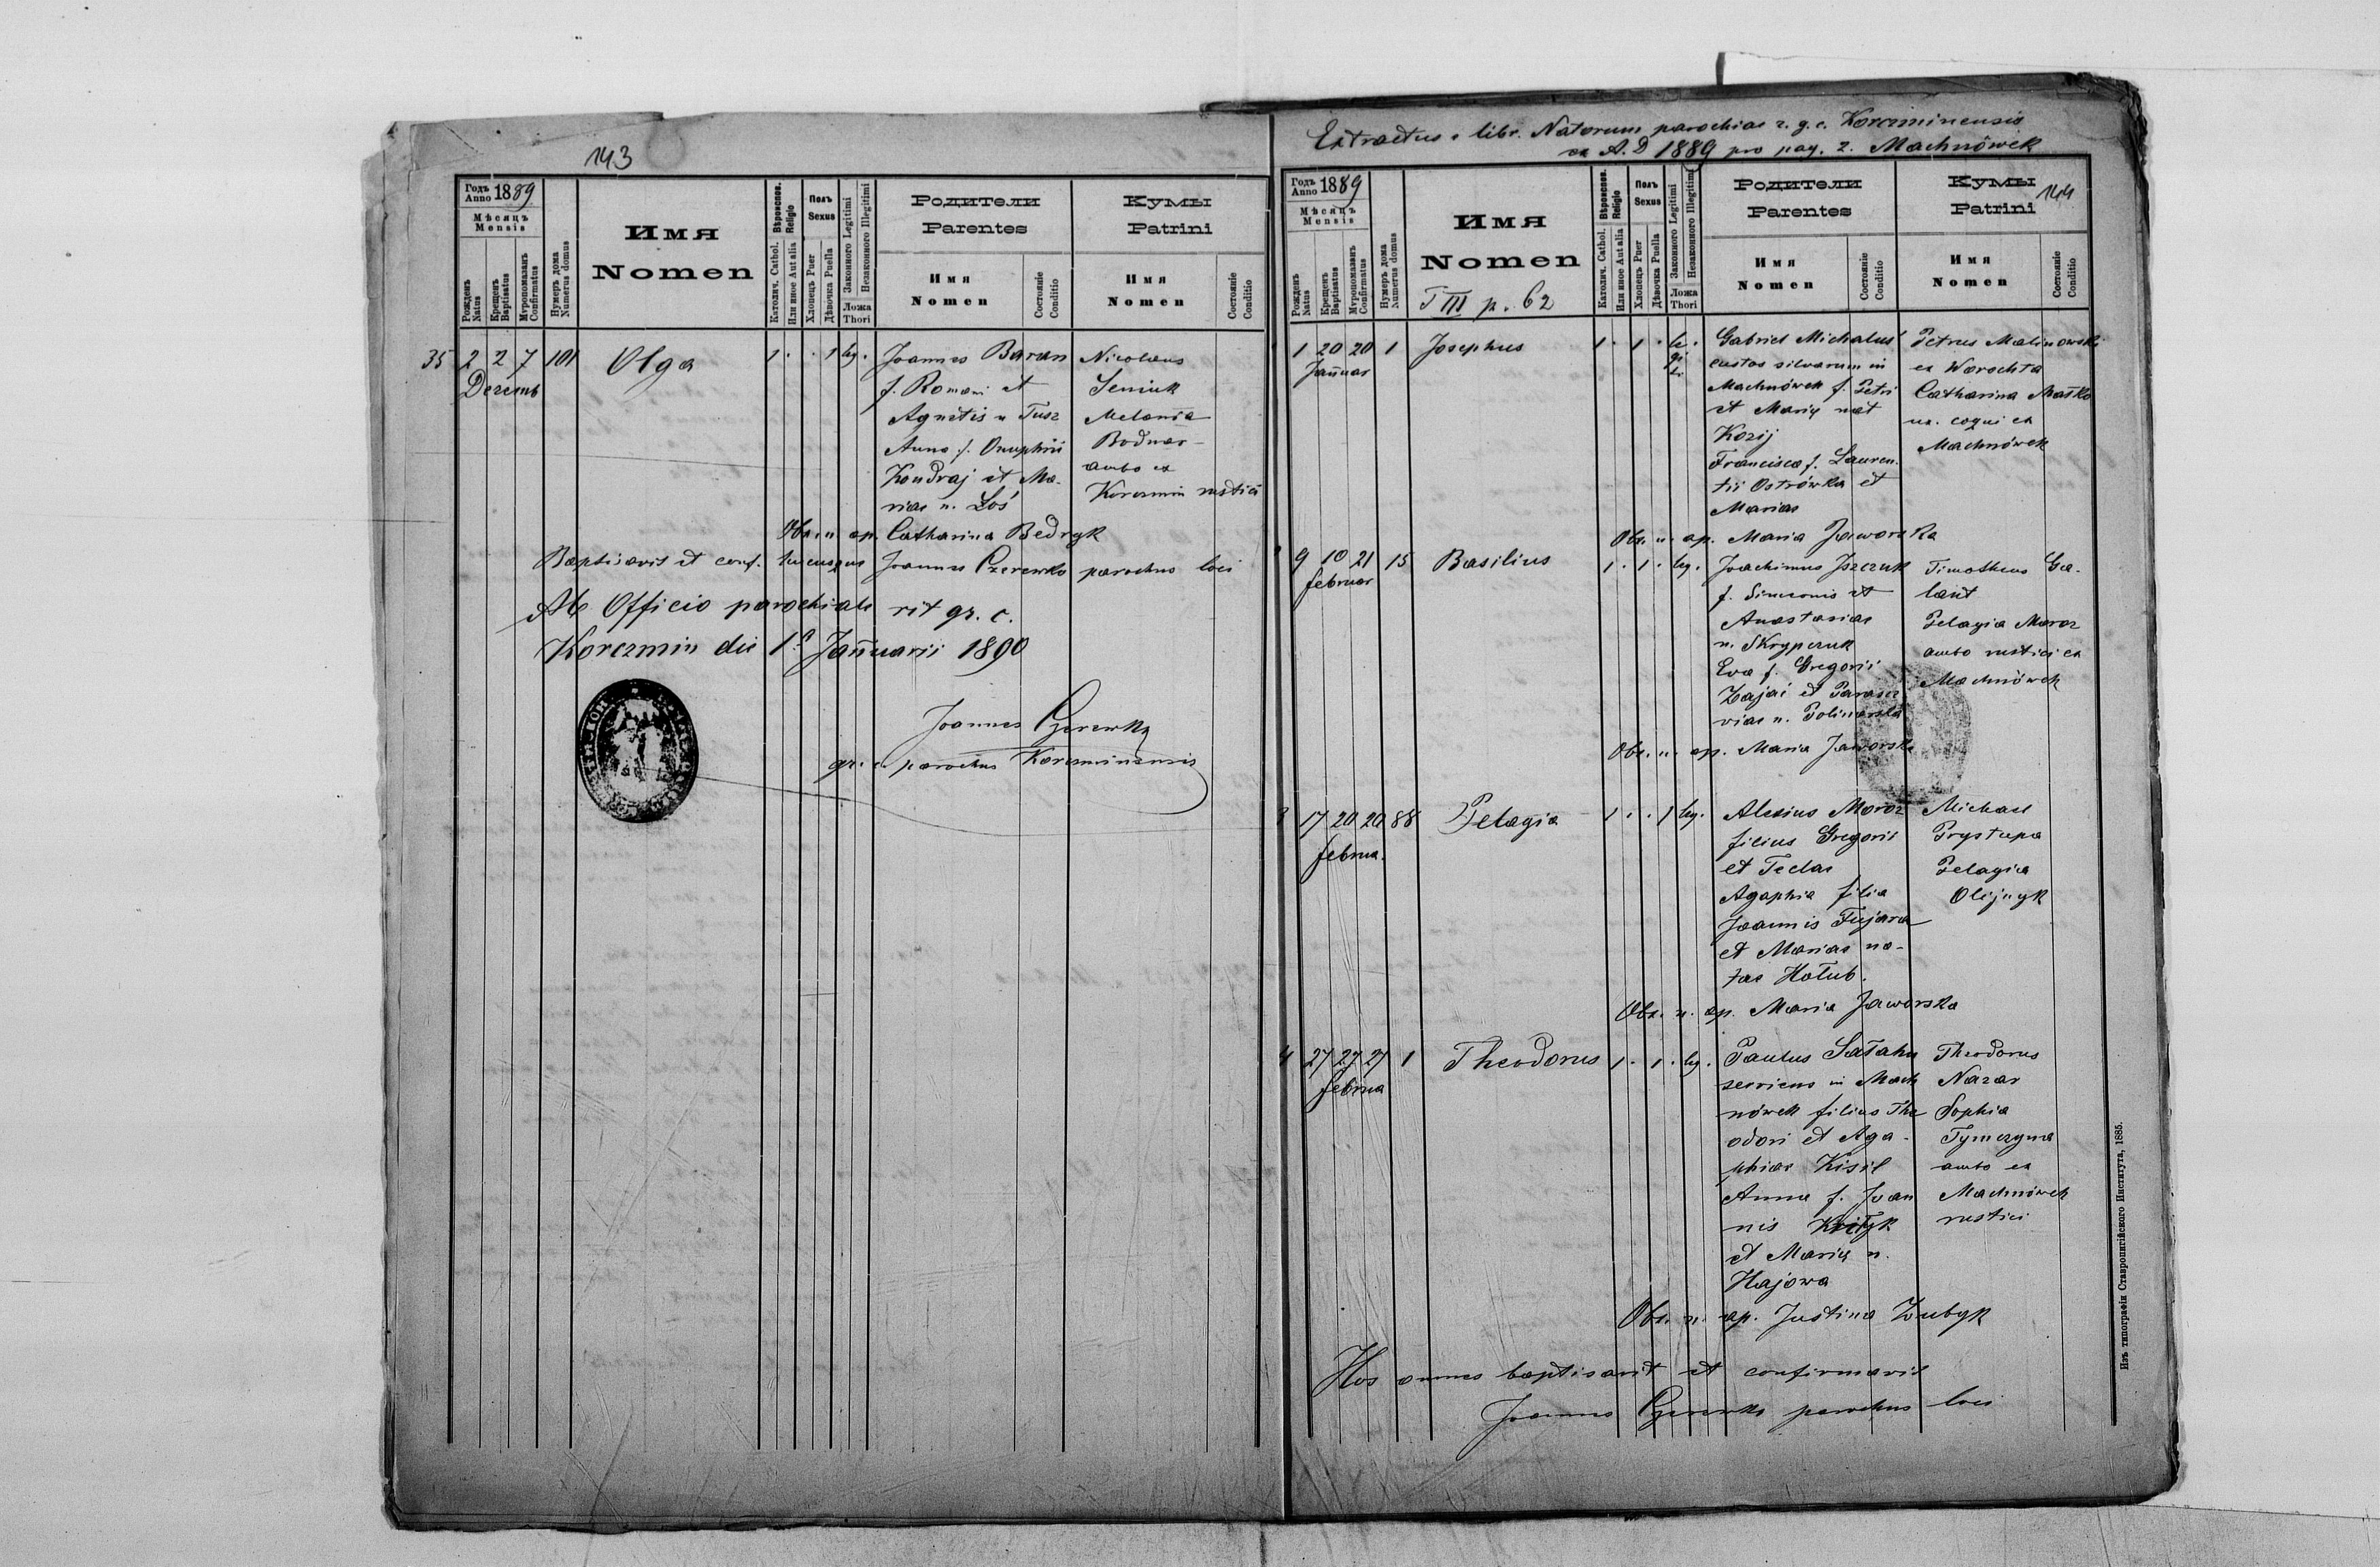 143
Годъ Anno 1889
Мѣсяцъ
Mensis
Рожденъ Natus
Крещенъ Baptisatus
Мѵропомазанъ Confirmatus
Нумеръ дома Numerus domus
Имя
Nomen
Вѣроиспов. Religio
Католич. Cathol.
Или иное Aut alia
Полъ
Sexus
Хлопецъ Puer
Дѣвочка Puella
Законного Legitimi
Незаконного Illegitimi
Ложа
Thori
Родители
Parentes
Имя
Nomen
Состояніе
Conditio
Кумы
Patrini
Имя
Nomen
Состояніе
Conditio
35 2 2 7 101 Olga 1 . . 1 leg. Joannes Baran Nicolaus
Decemb f. Romani et Seniuk
Agnetis n Tusz Melania
Anna f. Onuphrii Bodnar
Kondraj et Ma- ambo ex
riae n. Łoś Korczmin rustici
Obs. n. ap. Catharina Bedryk
Baptisavit et conf. hucusque Joannes Czerewko parochus loci
Ab Officio parochiali rit gr. c.
Korczmin die 1º Januarii 1890
Joannes Czerewko
gr. c. parochus Korczminensis
Extractus e libr. Natorum parochiae r. g. c. Korczminensis
ex A. D 1889 pro pag. z. Machnówek
144
Годъ Anno 1889
Мѣсяцъ
Mensis
Рожденъ Natus
Крещенъ Baptisatus
Мѵропомазанъ Confirmatus
Нумеръ дома Numerus domus
Имя
Nomen
T III p. 62
Вѣроиспов. Religio
Католич. Cathol.
Или иное Aut alia
Полъ
Sexus
Хлопецъ Puer
Дѣвочка Puella
Законного Legitimi
Незаконного Illegitimi
Ложа
Thori
Родители
Parentes
Имя
Nomen
Состояніе
Conditio
Кумы
Patrini
Имя
Nomen
Состояніе
Conditio
1 20 20 1 Josephus 1 . 1 . legiti Gabriel Michalus Petrus Malinowski
Januar custos silvarum in ex Worochta
Machnówek f. Petri Catharina Maśko
et Mariy nat ux. coqui ex
Kozij Machnówek
Francisca f. Lauren-
tii Ostrówka et
Mariae
Obs. n. ap. Maria Jaworska
9 10 21 15 Basilius 1 . 1 . leg. Joachimus Jszczuk Timotheus Ga-
Februar f. Simeonis et lant
Anastasiae Pelagia Moroz
n. Skrypczuk ambo rustici ex
Eva f. Gregorii Machnówek
Zajac et Parasce
viae n. Polinarska
Obs. n. ap. Maria Jaworska
3 17 20 20 88 Pelagia 1 . . 1 leg. Alexius Moroz Michael
Februa. filius Gregorii Prystupa
et Teclae Pelagia
Agaphia filia Olijnyk
Joannis Fujara
et Mariae na-
tae Hołub.
Obs. n. ap. Maria Jaworska
4 27 27 27 1 Theodorus 1 . 1 . leg. Paulus Sałahu Theodorus
Februa serviens in Mach Nazar
nówek filius The Sophia
odori et Aga- Tymczyna
phiae Kisil ambo ex
Anna f. Joan Machnówek
nis rustici
et Mariy n.
Hajowa
Obs. n. ap. Justina Zubyk
Hos omnes baptisavit et confirmavit
Joannes Czerewko parochus loci
Изъ типографіи Ставропигійского Института, 1885.